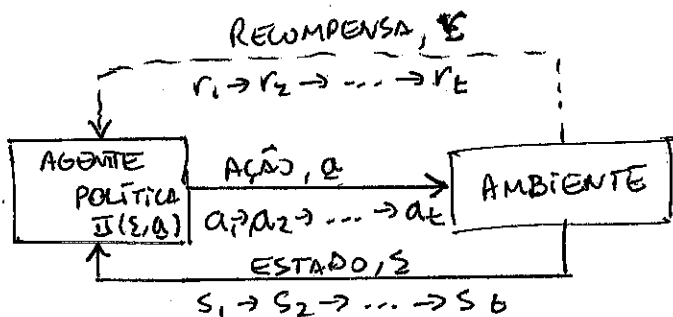 RECOMPENSA, r
r₁ → r₂ → ... → rt
AGENTE
POLÍTICA
π(s,a)
AÇÃO, a
a₁ → a₂ → ... → at
AMBIENTE
ESTADO, s
s₁ → s₂ → ... → st